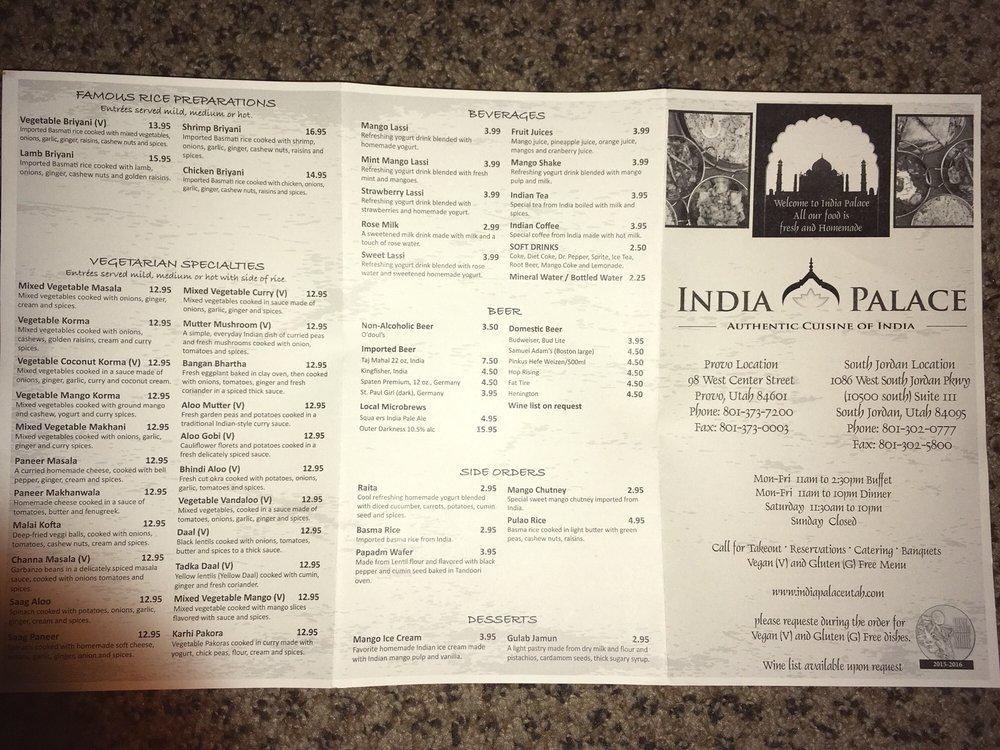 FAMOUS RICE PREPARATIONS
Entrées served mild, medium or hot.
Vegetable Briyani (V) 13.95
Imported Basmati rice cooked with mixed vegetables,
onions, garlic, ginger, raisins, cashew nuts and spices.
Lamb Briyani 15.95
Imported Basmati rice cooked with lamb,
onions, ginger, cashew nuts and golden raisins.
Shrimp Briyani 16.95
Imported Basmati rice cooked with shrimp,
onions, garlic, ginger, cashew nuts, raisins and
spices.
Chicken Briyani 14.95
Imported Basmati rice cooked with chicken, onions,
garlic, ginger, cashew nuts, raisins and spices.
VEGETARIAN SPECIALTIES
Entrées served mild, medium or hot with side of rice.
Mixed Vegetable Masala 12.95
Mixed vegetables cooked with onions, ginger,
cream and spices.
Vegetable Korma 12.95
Mixed vegetables cooked with onions,
cashews, golden raisins, cream and curry
spices.
Vegetable Coconut Korma (V) 12.95
Mixed vegetables cooked in a sauce made of
onions, ginger, garlic, curry and coconut cream.
Vegetable Mango Korma 12.95
Mixed vegetables cooked with ground mango
and cashew, yogurt and curry spices.
Mixed Vegetable Makhani 12.95
Mixed vegetables cooked with onions, garlic,
ginger and curry spices.
Paneer Masala 12.95
A curried homemade cheese, cooked with bell
pepper, ginger, cream and spices.
Paneer Makhanwala 12.95
Homemade cheese cooked in a sauce of
tomatoes, butter and fenugreek.
Malai Kofta 12.95
Deep-fried veggi balls, cooked with onions,
tomatoes, cashew nuts, cream and spices.
Channa Masala (V) 12.95
Garbanzo beans in a delicately spiced masala
sauce, cooked with onions tomatoes and
spices.
Saag Aloo 12.95
Spinach cooked with potatoes, onions, garlic,
ginger, cream and spices.
Saag Paneer 12.95
Spinach cooked with homemade soft cheese,
onions, garlic, ginger, onion and spices.
Mixed Vegetable Curry (V) 12.95
Mixed vegetables cooked in sauce made of
onions, garlic, ginger and spices.
Mutter Mushroom (V) 12.95
A simple, everyday Indian dish of curried peas
and fresh mushrooms cooked with onion,
tomatoes and spices.
Bangan Bhartha 12.95
Fresh eggplant baked in clay oven, then cooked
with onions, tomatoes, ginger and fresh
coriander in a spiced thick sauce.
Aloo Mutter (V) 12.95
Fresh garden peas and potatoes cooked in a
traditional Indian-style curry sauce.
Aloo Gobi (V) 12.95
Cauliflower florets and potatoes cooked in a
fresh delicately spiced sauce.
Bhindi Aloo (V) 12.95
Fresh cut okra cooked with potatoes, onions,
garlic, tomatoes and spices.
Vegetable Vandaloo (V) 12.95
Mixed vegetables, cooked in a sauce made of
tomatoes, onions, garlic, ginger and spices.
Daal (V) 12.95
Black lentils cooked with onions, tomatoes,
butter and spices to a thick sauce.
Tadka Daal (V) 12.95
Yellow lentils (Yellow Daal) cooked with cumin,
ginger and fresh coriander.
Mixed Vegetable Mango (V) 12.95
Mixed vegetable cooked with mango slices
flavored with sauce and spices.
Karhi Pakora 12.95
Vegetable Pakoras cooked in curry made with
yogurt, chick peas, flour, cream and spices.
BEVERAGES
Mango Lassi 3.99
Refreshing yogurt drink blended with
homemade yogurt.
Mint Mango Lassi 3.99
Refreshing yogurt drink blended with fresh
mint and mangoes.
Strawberry Lassi 3.99
Refreshing yogurt drink blended with
strawberries and homemade yogurt.
Rose Milk 2.99
A sweetened milk drink made with milk and a
touch of rose water.
Sweet Lassi 3.99
Refreshing yogurt drink blended with rose
water and sweetened homemade yogurt.
Fruit Juices 3.99
Mango juice, pineapple juice, orange juice,
mangos and cranberry juice.
Mango Shake 3.99
Refreshing yogurt drink blended with mango
pulp and milk.
Indian Tea 3.95
Special tea from India boiled with milk and
spices.
Indian Coffee 3.95
Special coffee from India made with hot milk.
SOFT DRINKS 2.50
Coke, Diet Coke, Dr. Pepper, Sprite, Ice Tea,
Root Beer, Mango Coke and Lemonade.
Mineral Water / Bottled Water 2.25
BEER
Non-Alcoholic Beer 3.50
O'doul's
Imported Beer
Taj Mahal 22 oz, India 7.50
Kingfisher, India 4.50
Spaten Premium, 12 oz., Germany 4.50
St. Paul Girl (dark), Germany 3.95
Local Microbrews
Squa ers India Pale Ale 4.95
Outer Darkness 10.5% alc 15.95
Domestic Beer
Budweiser, Bud Lite 3.95
Samuel Adam's (Boston large) 4.50
Pinkus Hefe Weizen/500ml 4.50
Hop Rising 4.50
Fat Tire 4.50
Henington 4.50
Wine list on request
SIDE ORDERS
Raita 2.95
Cool refreshing homemade yogurt blended
with diced cucumber, carrots, potatoes, cumin
seed and spices.
Basma Rice 2.95
Imported basma rice from India.
Papadm Wafer 3.95
Made from Lentil flour and flavored with black
pepper and cumin seed baked in Tandoori
oven.
Mango Chutney 2.95
Special sweet mango chutney imported from
India.
Pulao Rice 4.95
Basma rice cooked in light butter with green
peas, cashew nuts, raisins.
DESSERTS
Mango Ice Cream 3.95
Favorite homemade Indian ice cream made
with Indian mango pulp and vanilla.
Gulab Jamun 2.95
A light pastry made from dry milk and flour and
pistachios, cardamom seeds, thick sugary syrup.
Welcome to India Palace
All our food is
fresh and Homemade
INDIA PALACE
AUTHENTIC CUISINE OF INDIA
Provo Location
98 West Center Street
Provo, Utah 84601
Phone: 801-373-7200
Fax: 801-373-0003
South Jordan Location
1086 West South Jordan Pkwy
(10500 south) Suite 111
South Jordan, Utah 84095
Phone: 801-302-0777
Fax: 801-302-5800
Mon-Fri 11am to 2:30pm Buffet
Mon-Fri 11am to 10pm Dinner
Saturday 11:30am to 10pm
Sunday Closed
Call for Takeout · Reservations · Catering · Banquets
Vegan (V) and Gluten (G) Free Menu
www.indiapalaceutah.com
please requeste during the order for
Vegan (V) and Gluten (G) Free dishes.
Wine list available upon request
2015-2016